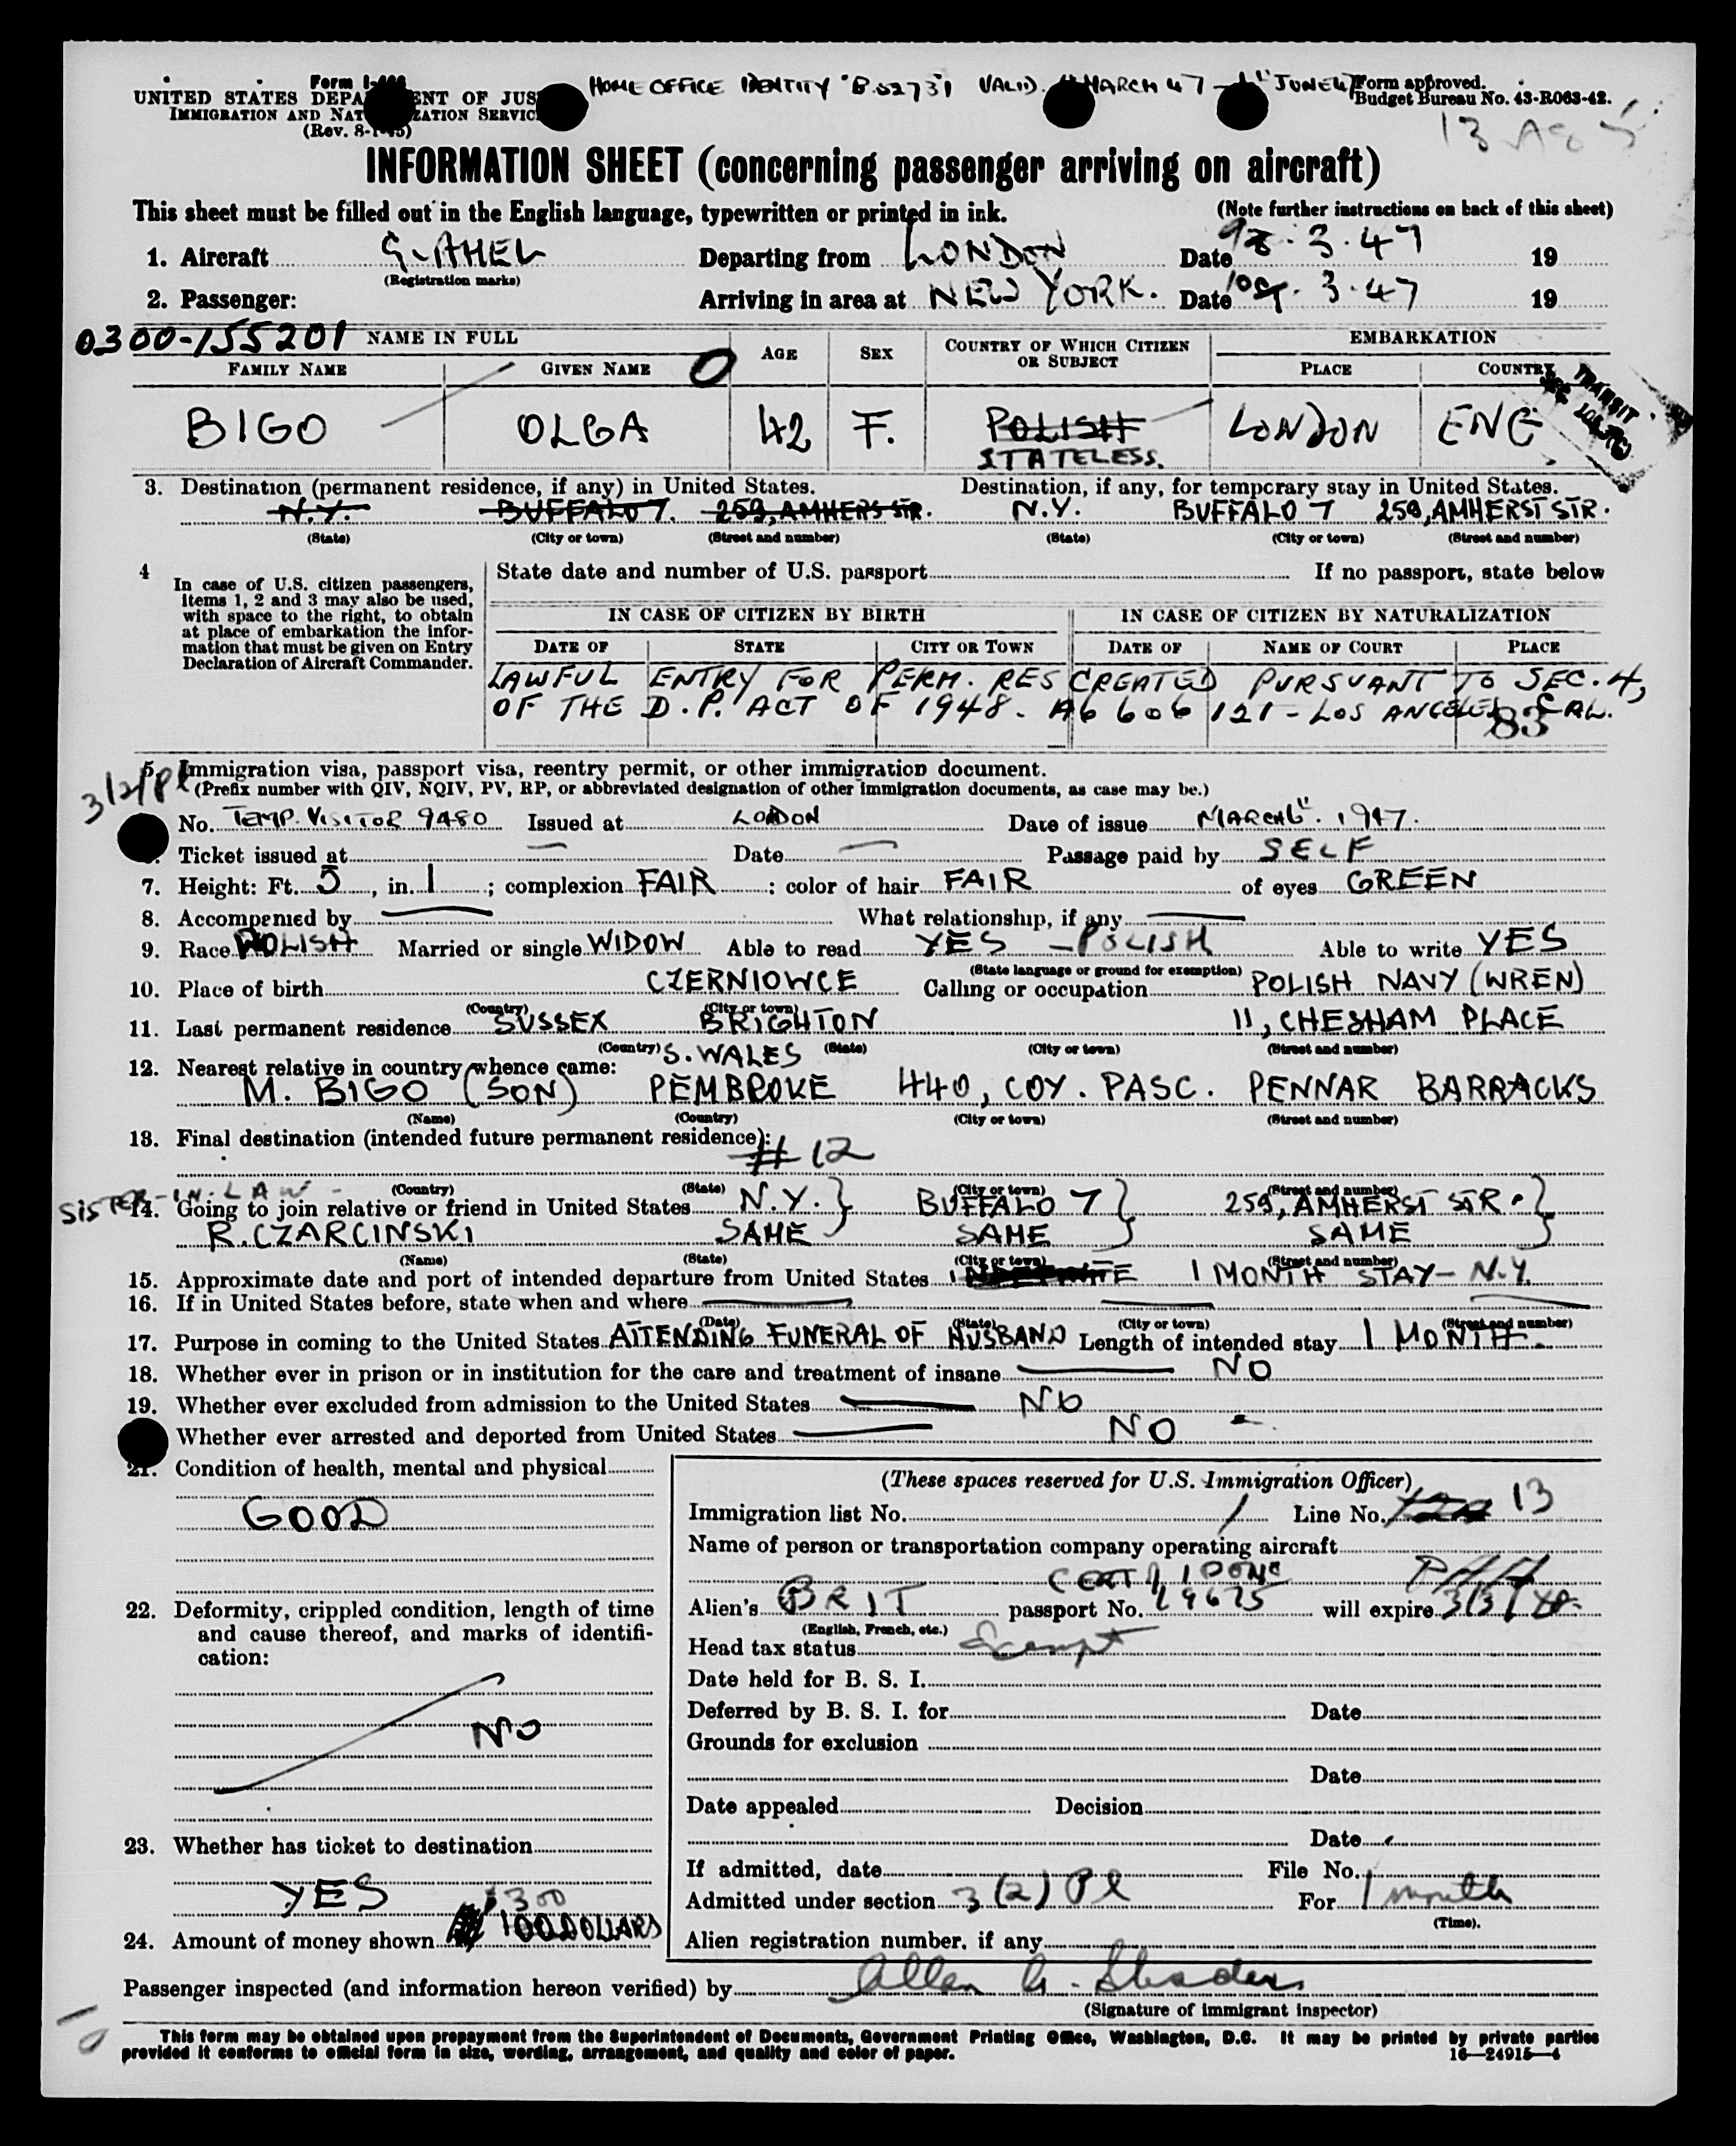 HOME OFFICE IDENTITY VALID. MARCH 47 JUNE 47
UNITED STATES DEPA ENT OF JUS
IMMIGRATION AND NAT ZATION SERVIC
Form approved.
Budget Bureau No. 43-R063-42.
INFORMATION SHEET (concerning passenger arriving on aircraft)
This sheet must be filled out in the English language, typewritten or printed in ink. (Note further instructions on back of this sheet)
1. Aircraft G-AHEL Departing from LONDON Date 3.47 19
(Registration marks)
2. Passenger: Arriving in area at NEW YORK. Date 3.47 19
0300-155201 NAME IN FULL AGE SEX COUNTRY OF WHICH CITIZEN OR SUBJECT EMBARKATION
FAMILY NAME GIVEN NAME PLACE COUNTRY
TRANSIT
BIGO OLGA 42 F. POLISH LONDON ENG
STATELESS.
3. Destination (permanent residence, if any) in United States. Destination, if any, for temporary stay in United States.
N.Y. BUFFALO 7. 259, AMHERS STR. N.Y. BUFFALO 7 259, AMHERST STR.
(State) (City or town) (Street and number) (State) (City or town) (Street and number)
4 In case of U.S. citizen passengers, items 1, 2 and 3 may also be used, with space to the right, to obtain at place of embarkation the information that must be given on Entry Declaration of Aircraft Commander.
State date and number of U.S. passport If no passport, state below
IN CASE OF CITIZEN BY BIRTH IN CASE OF CITIZEN BY NATURALIZATION
DATE OF STATE CITY OR TOWN DATE OF NAME OF COURT PLACE
LAWFUL ENTRY FOR PERM. RES CREATED PURSUANT TO SEC. 4,
OF THE D.P. ACT OF 1948. A6 606 121 - LOS ANGELES CAL.
83
5. Immigration visa, passport visa, reentry permit, or other immigration document.
(Prefix number with QIV, NQIV, PV, RP, or abbreviated designation of other immigration documents, as case may be.)
No. TEMP. VISITOR 9480 Issued at LONDON Date of issue MARCH 6". 1947.
Ticket issued at Date Passage paid by SELF
7. Height: Ft. 5, in. 1; complexion FAIR; color of hair FAIR of eyes GREEN
8. Accompanied by What relationship, if any
9. Race POLISH Married or single WIDOW Able to read YES - POLISH Able to write YES
(State language or ground for exemption)
10. Place of birth CZERNIOWCE Calling or occupation POLISH NAVY (WREN)
(Country) (City or town)
11. Last permanent residence SUSSEX BRIGHTON 11, CHESHAM PLACE
(Country) (State) (City or town) (Street and number)
12. Nearest relative in country whence came: S. WALES
M. BIGO (SON) PEMBROKE 440, COY. PASC. PENNAR BARRACKS
(Name) (Country) (City or town) (Street and number)
13. Final destination (intended future permanent residence):
# 12
(Country) (State) (City or town) (Street and number)
SISTER-IN-LAW -
14. Going to join relative or friend in United States N.Y. BUFFALO 7 259, AMHERST STR.
R. CZARCINSKI SAME SAME SAME
(Name) (State) (City or town) (Street and number)
15. Approximate date and port of intended departure from United States 1 MONTH STAY - N.Y.
16. If in United States before, state when and where
(Date) (State) (City or town) (Street and number)
17. Purpose in coming to the United States ATTENDING FUNERAL OF HUSBAND Length of intended stay 1 MONTH.
18. Whether ever in prison or in institution for the care and treatment of insane NO
19. Whether ever excluded from admission to the United States NO
Whether ever arrested and deported from United States NO
21. Condition of health, mental and physical
GOOD
22. Deformity, crippled condition, length of time and cause thereof, and marks of identification:
NO
23. Whether has ticket to destination
YES
$300
24. Amount of money shown 100 DOLLARS
(These spaces reserved for U.S. Immigration Officer)
Immigration list No. 1 Line No. 13
Name of person or transportation company operating aircraft
PAA
Alien's BRIT passport No. 19675 will expire
(English, French, etc.)
Head tax status Exempt
Date held for B. S. I.
Deferred by B. S. I. for Date
Grounds for exclusion
Date
Date appealed Decision
Date
If admitted, date File No.
Admitted under section 3(2) Pl For 1 month
(Time).
Alien registration number, if any
Passenger inspected (and information hereon verified) by Allen
(Signature of immigrant inspector)
This form may be obtained upon prepayment from the Superintendent of Documents, Government Printing Office, Washington, D.C. It may be printed by private parties
provided it conforms to official form in size, wording, arrangement, and quality and color of paper. 16—24915-4